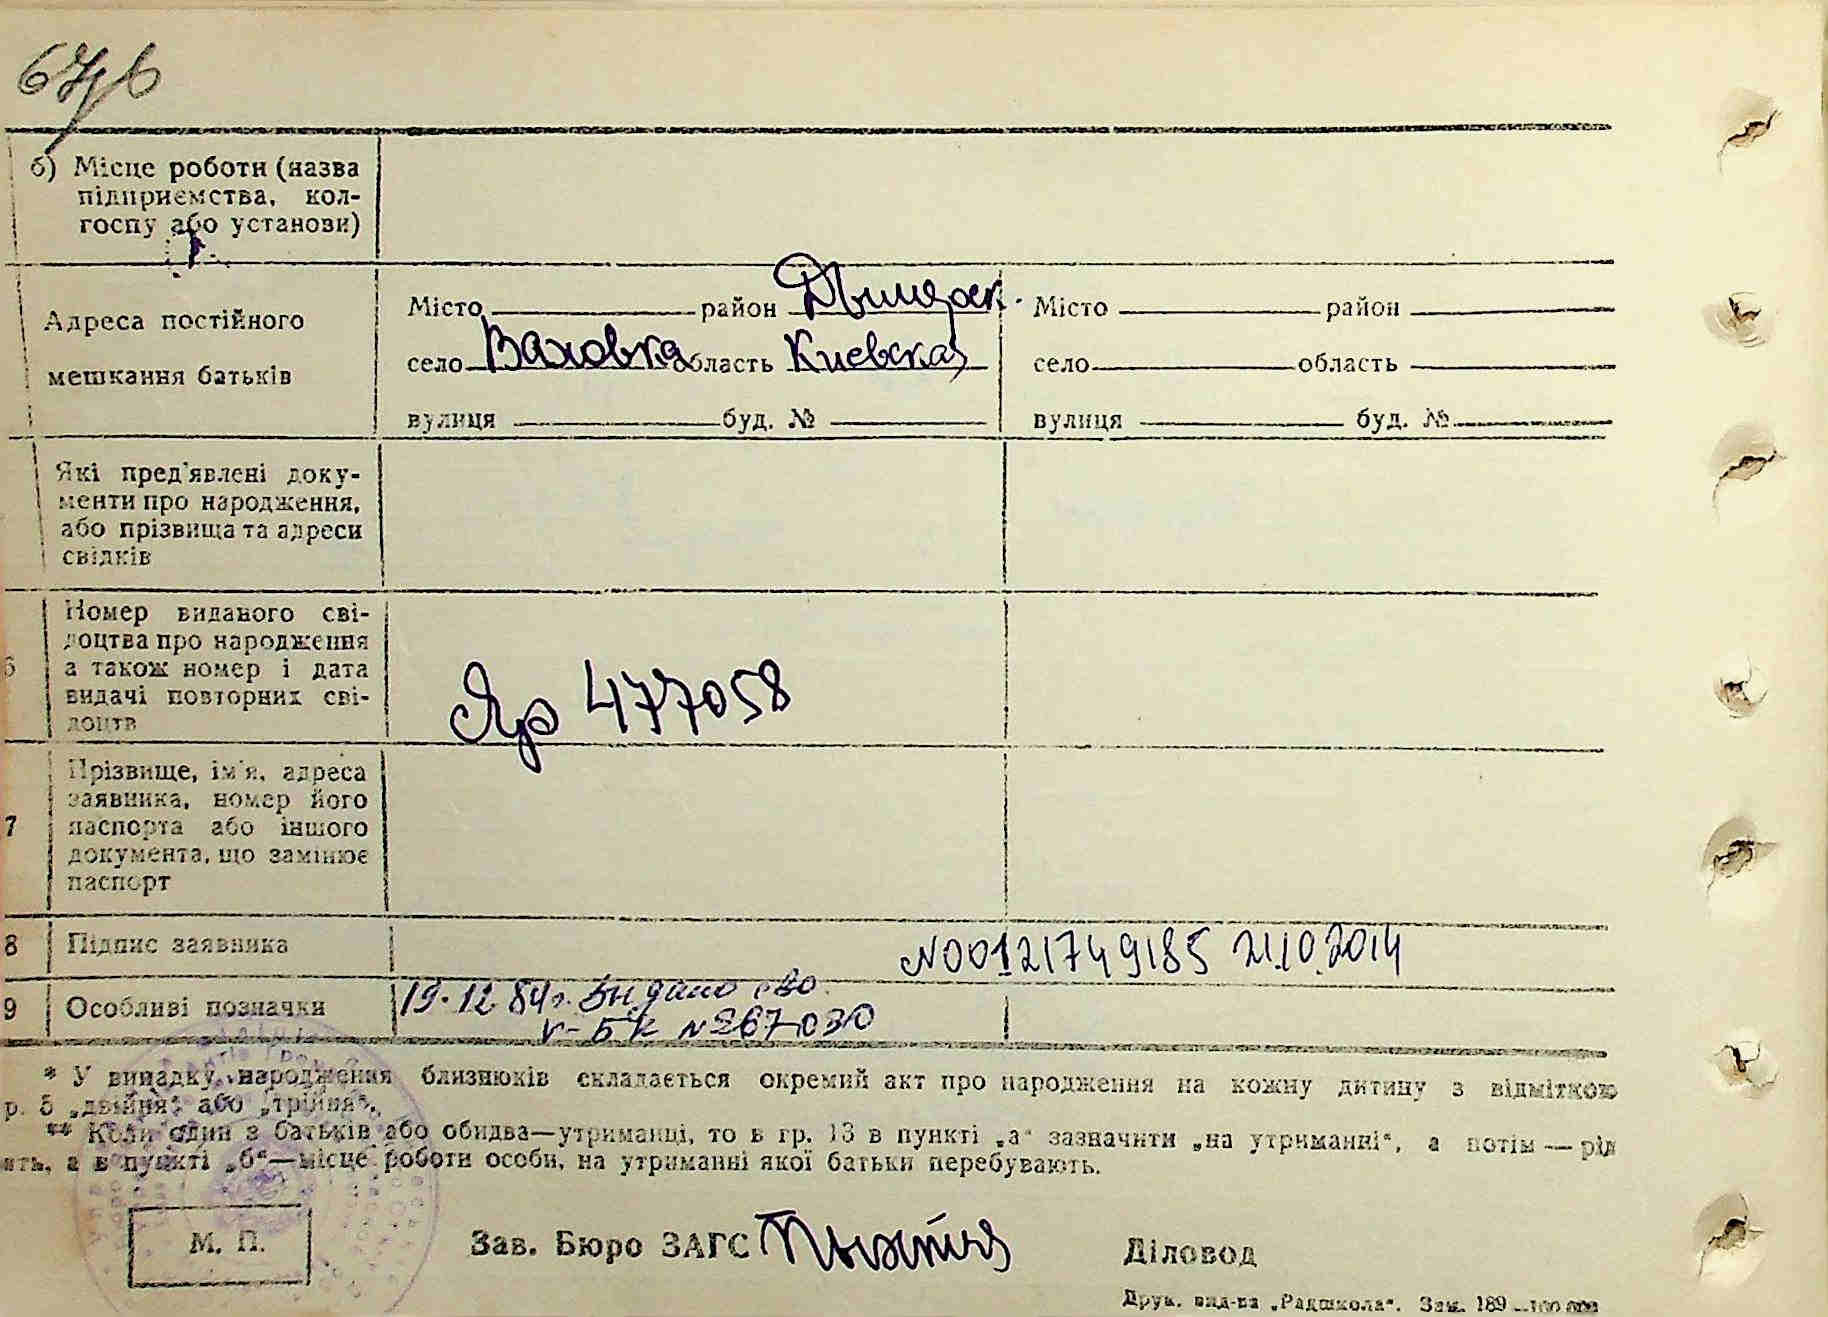 б) Місце роботи (назва
підприємства, кол-
госпу або установи)
Адреса постійного
мешкання батьків
Місто район Дымерск. Місто район
село Вахов­ка область Киевская село область
вулиця буд. № вулиця буд. №
Які пред'явлені доку-
менти про народження,
або прізвища та адреси
свідків
6 Номер виданого сві-
доцтва про народження
а також номер і дата
видачі повторних сві-
доцтв
Яр 477058
7 Прізвище, ім'я, адреса
заявника, номер його
паспорта або іншого
документа, що замінює
паспорт
8 Підпис заявника
N00121749185 21.10.2014
9 Особливі позначки
19.12.84г. Выдано сво
V-БК №267030
* У випадку народження близнюків складається окремий акт про народження на кожну дитину з відміткою
р. 5 „двійня" або „трійня".
** Коли один з батьків або обидва—утриманці, то в гр. 13 в пункті „а" зазначити „на утриманні", а потім — рід
ять, а в пункті „б"—місце роботи особи, на утриманні якої батьки перебувають.
М. П.
Зав. Бюро ЗАГС
Діловод
Друк. вид-ва „Радшкола". Зам. 189